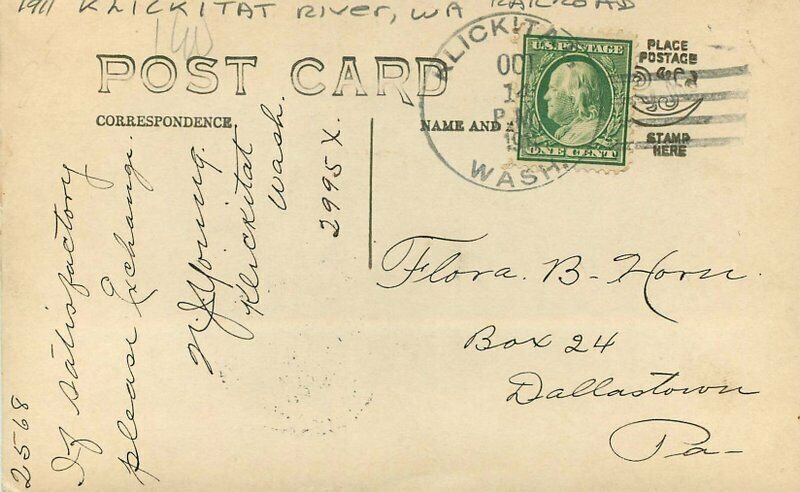 1911 KLICKITAT RIVER, WA RAILROAD
POST CARD
CORRESPONDENCE
NAME AND
KLICKITAT
OCT
14
P.M.
WASH.
U.S. POSTAGE
ONE CENT
PLACE
POSTAGE
STAMP
HERE
2568
If satisfactory
please Exchange.
Young.
Klickitat
Wash.
2995X.
Flora. B- Horn.
Box 24
Dallastown
Pa-